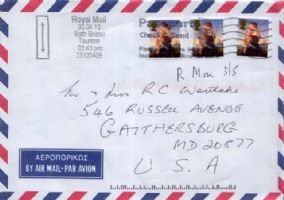 Royal Mail
30.04.10
Bath Bristol
Taunton
03:43 pm
23103409
R Mon 3/5
Mr & Mrs R C Westlake
546 RUSSELL AVENUE
GAITHERSBURG
MD 20877
U.S.A
ΑΕΡΟΠΟΡΙΚΩΣ
BY AIR MAIL · PAR AVION